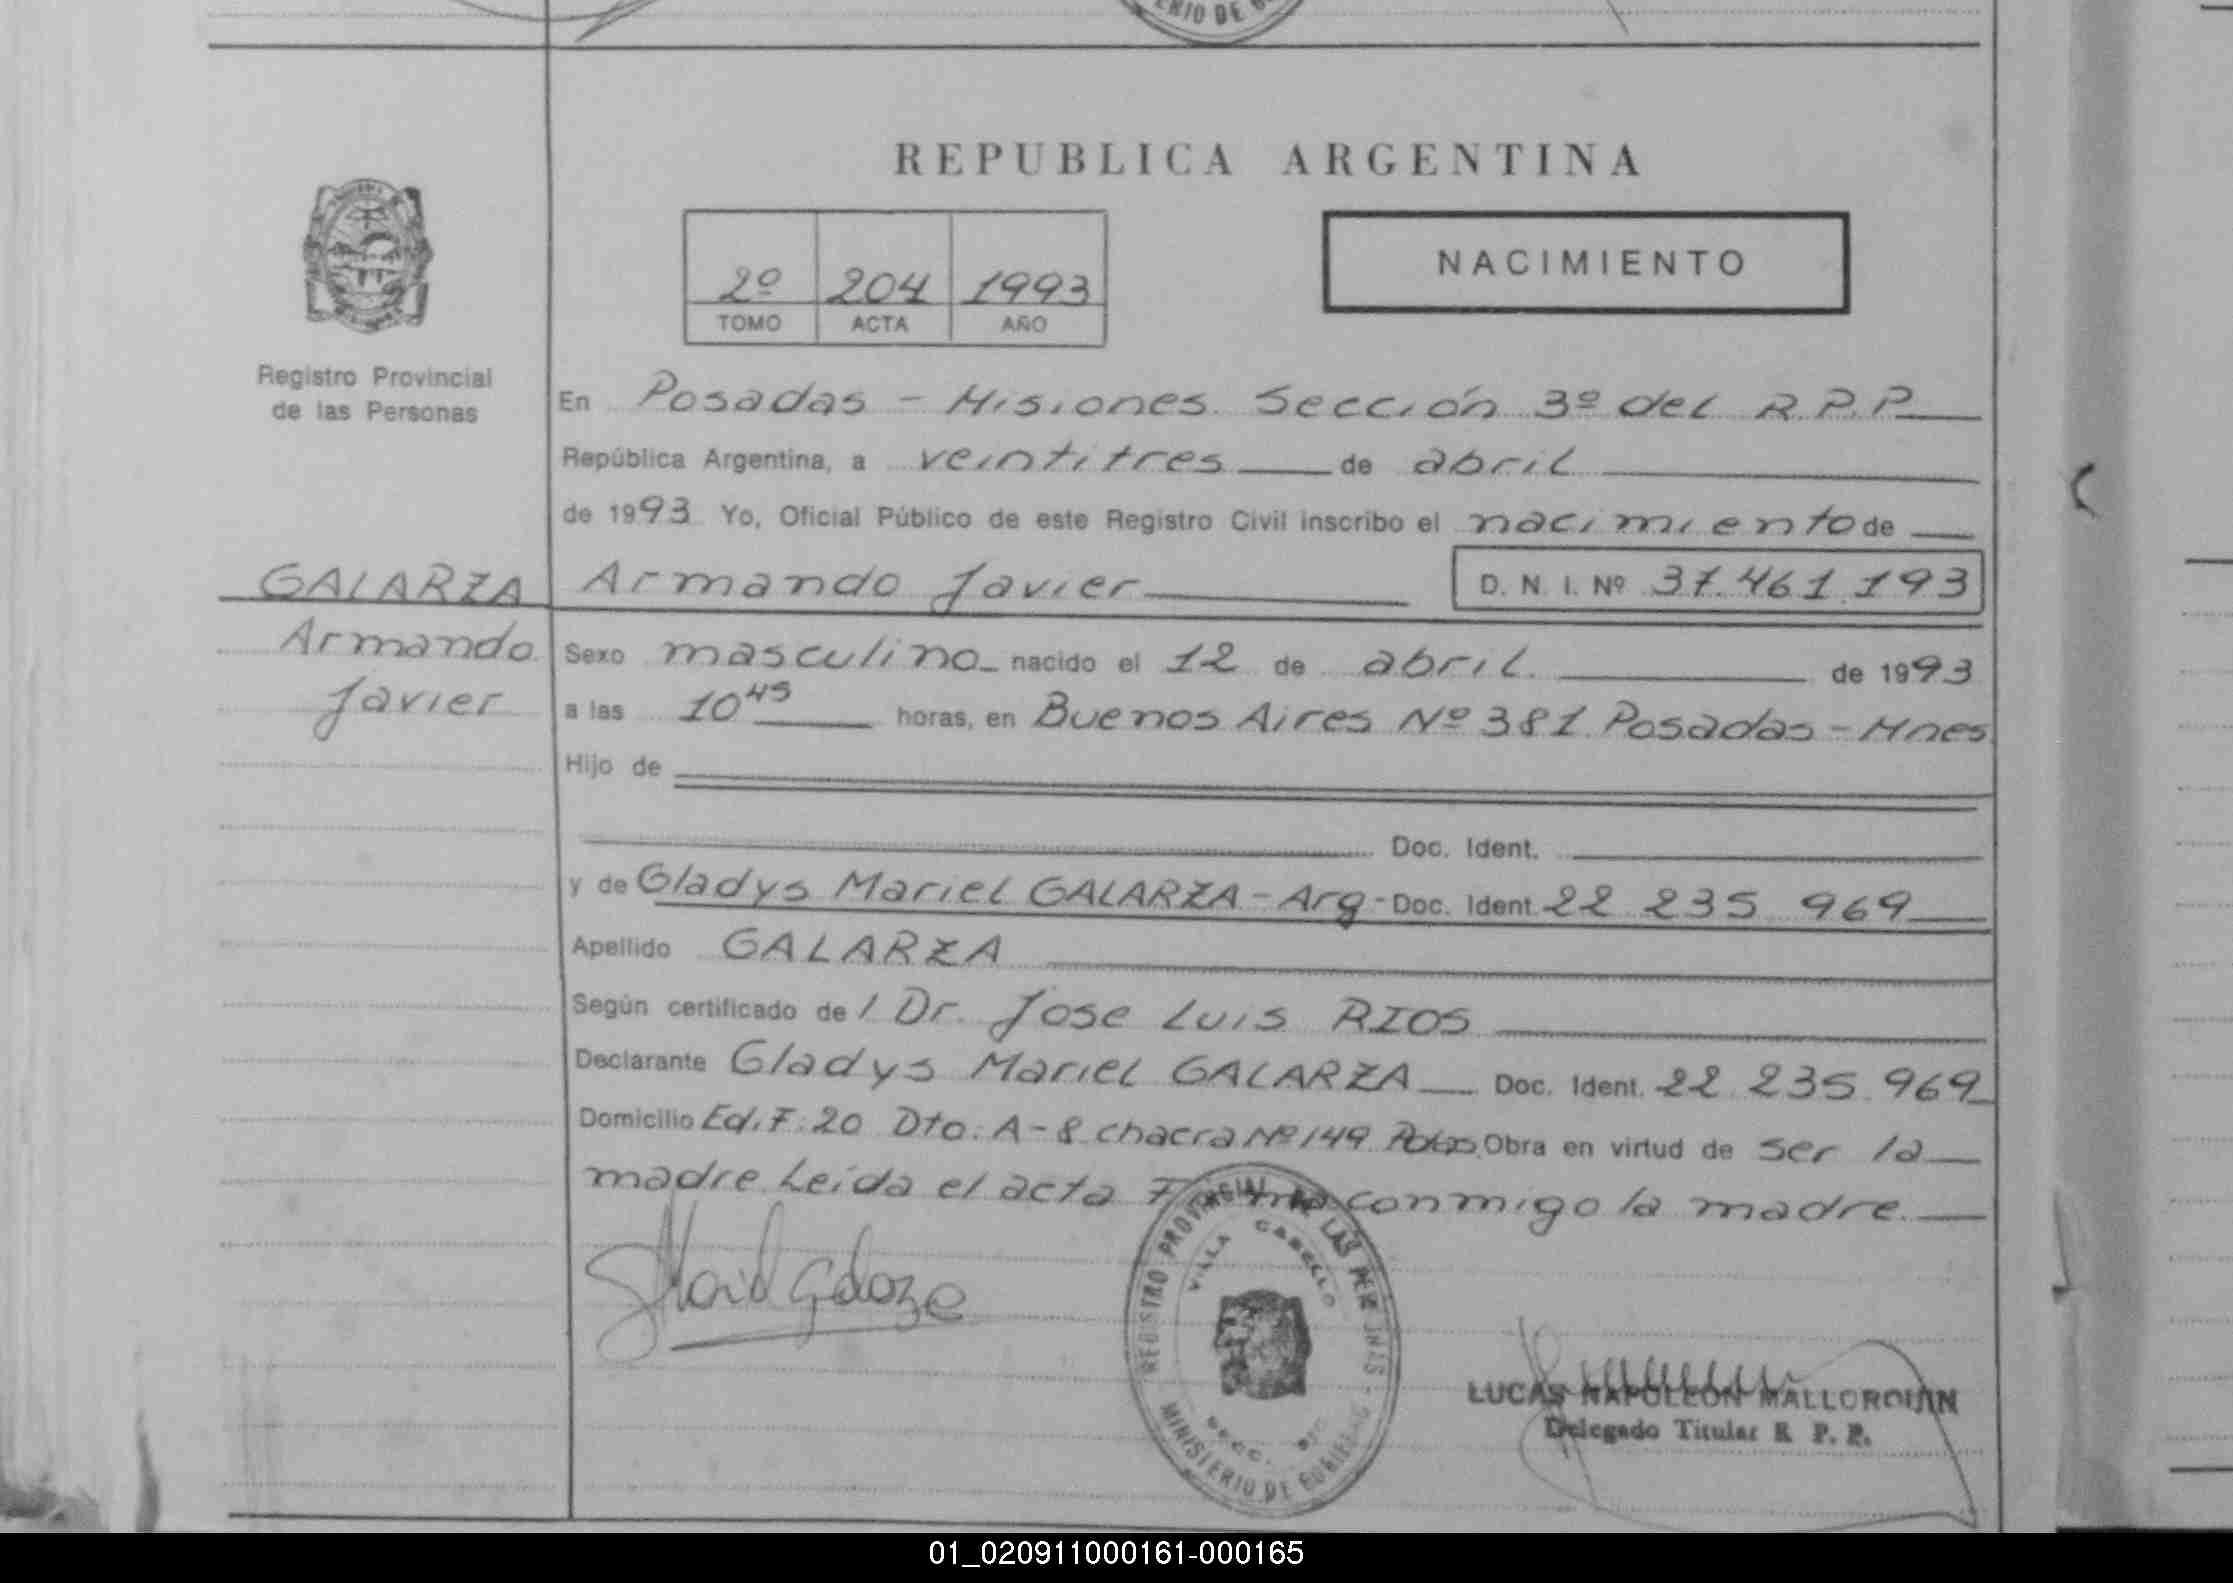 ERIO DE
REPUBLICA ARGENTINA
2º 204 1993
TOMO ACTA AÑO
NACIMIENTO
Registro Provincial
de las Personas
En Posadas - Misiones. Sección 3º del R.P.P.
República Argentina, a veintitres de abril
de 1993 Yo, Oficial Público de este Registro Civil inscribo el nacimiento de
GALARZA
Armando Javier
D. N. I. Nº 37.461.193
Armando
Javier
Sexo masculino nacido el 12 de abril de 1993
a las 10 45 horas, en Buenos Aires Nº 381 Posadas - Mnes
Hijo de
Doc. Ident.
y de Gladys Mariel GALARZA - Arg - Doc. Ident. 22 235 969
Apellido GALARZA
Según certificado de / Dr. Jose Luis RIOS
Declarante Gladys Mariel GALARZA Doc. Ident. 22 235 969
Domicilio Edif: 20 Dto: A-8 chacra Nº 149 Obra en virtud de ser la
madre Leida el acta Firma conmigo la madre.
REGISTRO PROVINCIAL DE LAS PER
VILLA CABELLO
SECC.
MINISTERIO DE GOBIERNO
LUCAS NAPOLEON
Delegado Titular R. P. P.
01_020911000161-000165